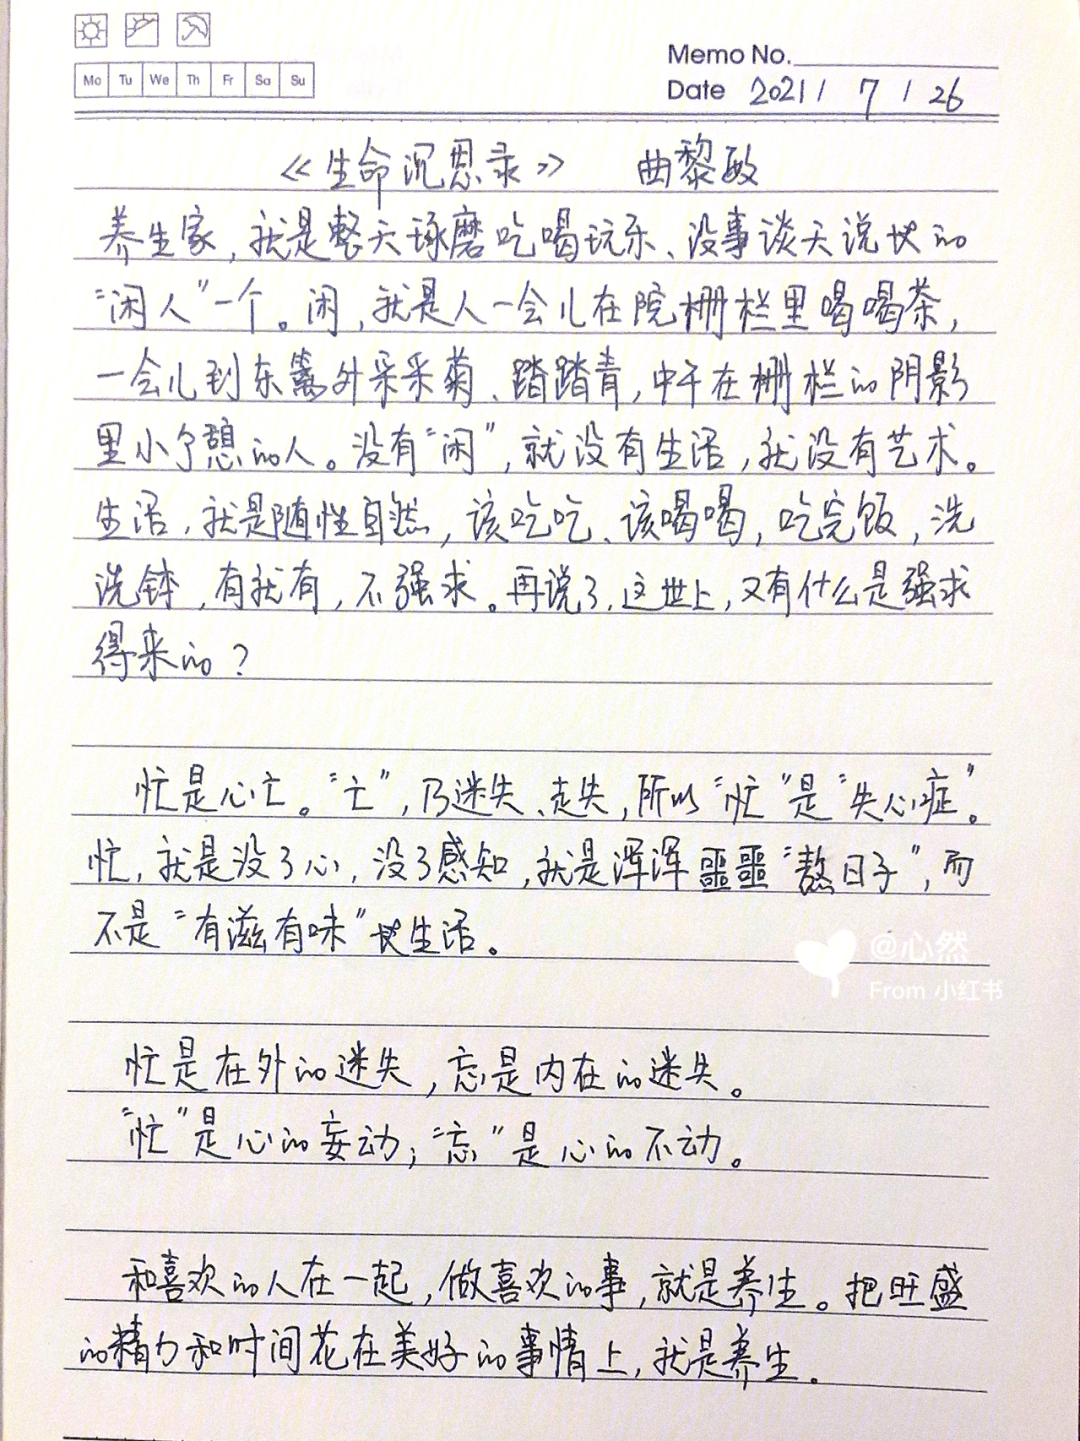 Mo Tu We Th Fr Sa Su
Memo No.
Date 2021 / 7 / 26
《生命沉思录》 曲黎敏
养生家,就是整天琢磨吃喝玩乐、没事谈天说地的
“闲人”一个。闲,就是人一会儿在院栅栏里喝喝茶,
一会儿到东篱外采采菊、踏踏青,中午在栅栏的阴影
里小憩的人。没有“闲”,就没有生活,就没有艺术。
生活,就是随性自然,该吃吃、该喝喝,吃完饭,洗
洗钵,有就有,不强求。再说了,这世上,又有什么是强求
得来的?
忙是心亡。“亡”,乃迷失、走失,所以“忙”是“失心症”。
忙,就是没了心,没了感知,就是浑浑噩噩“熬日子”,而
不是“有滋有味”地生活。
@心然
From 小红书
忙是在外的迷失,忘是内在的迷失。
“忙”是心的妄动;“忘”是心的不动。
和喜欢的人在一起,做喜欢的事,就是养生。把旺盛
的精力和时间花在美好的事情上,就是养生。